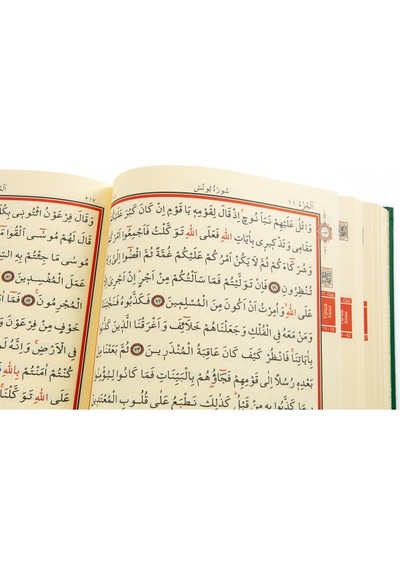 اَلْجُزْءُ ١١
سُورَةُ يُونُسَ
وَاتْلُ عَلَيْهِمْ نَبَاَ نُوحٍ اِذْ قَالَ لِقَوْمِهِ يَا قَوْمِ اِنْ كَانَ كَبُرَ عَلَيْكُمْ
مَقَامِي وَتَذْكِيرِي بِاٰيَاتِ اللّٰهِ فَعَلَى اللّٰهِ تَوَكَّلْتُ فَاَجْمِعُٓوا اَمْرَكُمْ
وَشُرَكَٓاءَكُمْ ثُمَّ لَا يَكُنْ اَمْرُكُمْ عَلَيْكُمْ غُمَّةً ثُمَّ اقْضُٓوا اِلَيَّ وَلَا
تُنْظِرُونِ ٧١ فَاِنْ تَوَلَّيْتُمْ فَمَا سَاَلْتُكُمْ مِنْ اَجْرٍ اِنْ اَجْرِيَ اِلَّا
عَلَى اللّٰهِ وَاُمِرْتُ اَنْ اَكُونَ مِنَ الْمُسْلِمِينَ ٧٢ فَكَذَّبُوهُ فَنَجَّيْنَاهُ
وَمَنْ مَعَهُ فِي الْفُلْكِ وَجَعَلْنَاهُمْ خَلَٓائِفَ وَاَغْرَقْنَا الَّذِينَ كَذَّبُوا
بِاٰيَاتِنَا فَانْظُرْ كَيْفَ كَانَ عَاقِبَةُ الْمُنْذَرِينَ ٧٣ ثُمَّ بَعَثْنَا مِنْ
بَعْدِهِ رُسُلًا اِلٰى قَوْمِهِمْ فَجَٓاؤُهُمْ بِالْبَيِّنَاتِ فَمَا كَانُوا لِيُؤْمِنُوا
بِمَا كَذَّبُوا بِهِ مِنْ قَبْلُ كَذٰلِكَ نَطْبَعُ عَلٰى قُلُوبِ الْمُعْتَدِينَ
٢١٧
وَقَالَ فِرْعَوْنُ ائْتُونِي بِكُلِّ
قَالَ لَهُمْ مُوسٰٓى اَلْقُوا مَٓا
مُوسٰى مَا جِئْتُمْ بِهِ
عَمَلَ الْمُفْسِدِينَ
الْمُجْرِمُونَ فَمَٓا
خَوْفٍ مِنْ فِرْعَوْنَ
فِي الْاَرْضِ وَاِنَّهُ
كُنْتُمْ اٰمَنْتُمْ بِاللّٰهِ
عَلَى اللّٰهِ تَوَكَّلْنَا